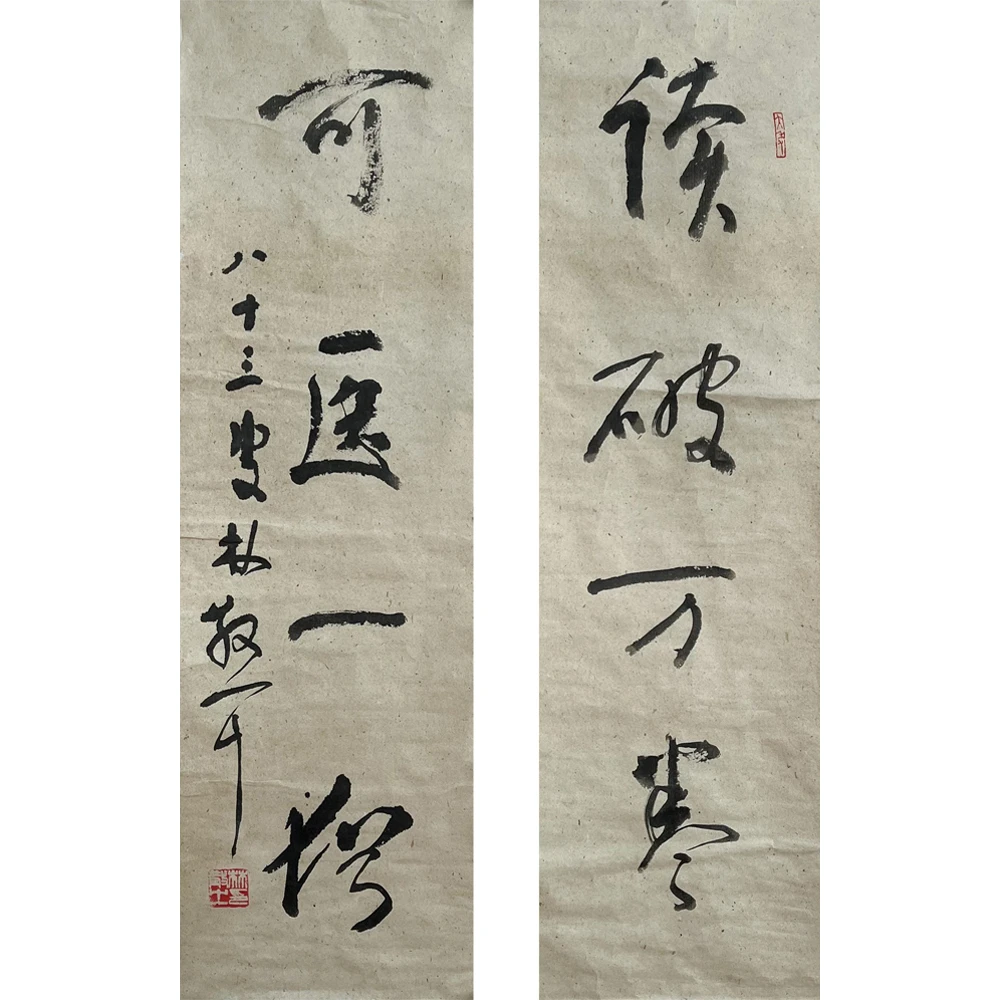 读破万卷
可医一
八十三叟林散耳